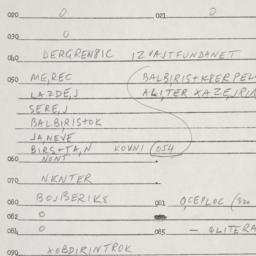 020 0 021 0
030 0
040 DERGRENBIC IZVAJTFUNDANET
050 ME,REC BALBIRIS+KRERPEL
LAZDE,J ALITER XAZE,IRIN
SERE,J
BALBIRIS+OK
JA,NEVE
BIRS+TA,N KOVNI (054
060 NONT
070 NKNTER
080 BOJBERIKS 081 O,CEPLOC (S20
082 0
084 0 085 - QLITERA
090 XOBDIRINTROK